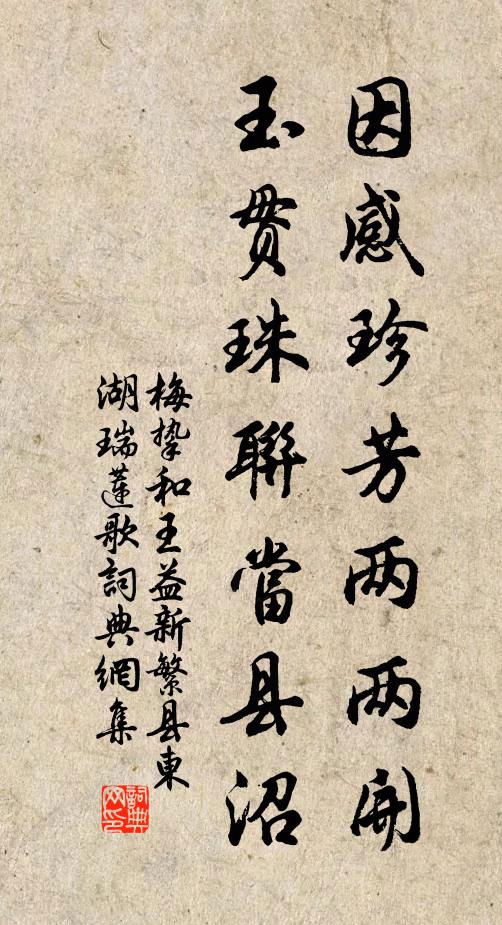 因感珍芳两两開
玉贯珠聯當县沼
梅挚和王益新繁县東
湖瑞蓮歌詞典網集
詞典
网印